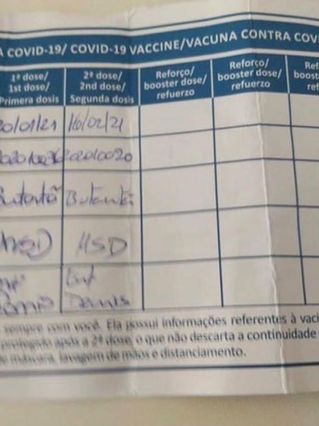 A COVID-19/ COVID-19 VACCINE/VACUNA CONTRA COV
1ª dose/ 2ª dose/ Reforço/ Reforço/ Ref
1st dose/ 2nd dose/ booster dose/ booster dose/ boost
Primera dosis Segunda dosis refuerzo refuerzo re
20/01/21 16/02/21
202010020
Butantã Butantã
HSD HSD
Enf
Denis
sempre com você. Ela possui informações referentes à vaci
protegido após a 2ª dose, o que não descarta a continuidade
de máscara, lavagem de mãos e distanciamento.